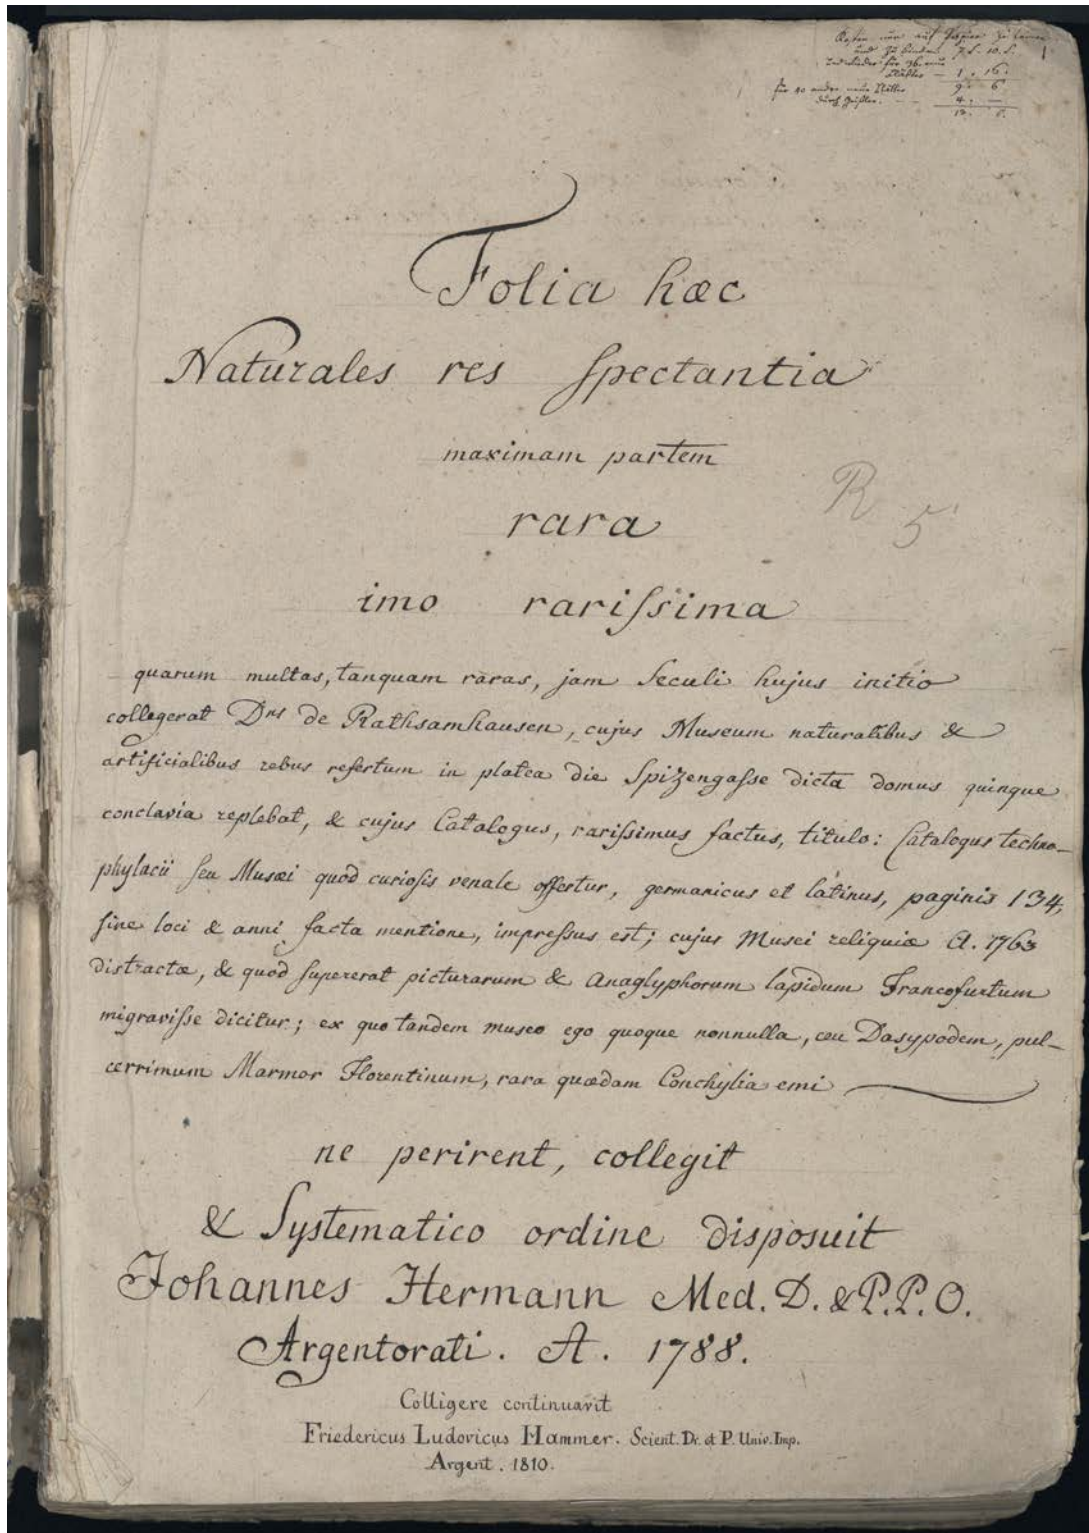 Kosten nun auf Papier zu
und zu binden 7 f. 10 f.
für 36 neue
Blätter — 1. 16.
für 40 andre neue Blätter 9. 6
durch — — 4. —
13. 6.
1
Folia hæc
Naturales res ſpectantia
maximam partem
rara
imo rariſsima
R 5
quarum multas, tanquam raras, jam Seculi hujus initio
collegerat Dns de Rathsamhausen, cujus Museum naturalibus &
artificialibus rebus refertum in platea die Spizengaſse dicta domus quinque
conclavia replebat, & cujus Catalogus, rariſsimus factus, titulo: Catalogus techno-
phylacii ſeu Musæi quod curiosis venale offertur, germanicus et latinus, paginis 134,
ſine loci & anni facta mentione, impreſsus est; cujus Musei reliquiæ A. 1763
distractæ, & quod ſupererat picturarum & Anaglyphorum lapidum Francofurtum
migraviſse dicitur; ex quo tandem museo ego quoque nonnulla, ceu Dasypodem, pul-
cerrimum Marmor Florentinum, rara quædam Conchylia emi
ne perirent, collegit
& Systematico ordine disposuit
Johannes Hermann Med. D. & P. P. O.
Argentorati. A. 1788.
Colligere continuavit
Friedericus Ludovicus Hammer. Scient. Dr. et P. Univ. Imp.
Argent. 1810.